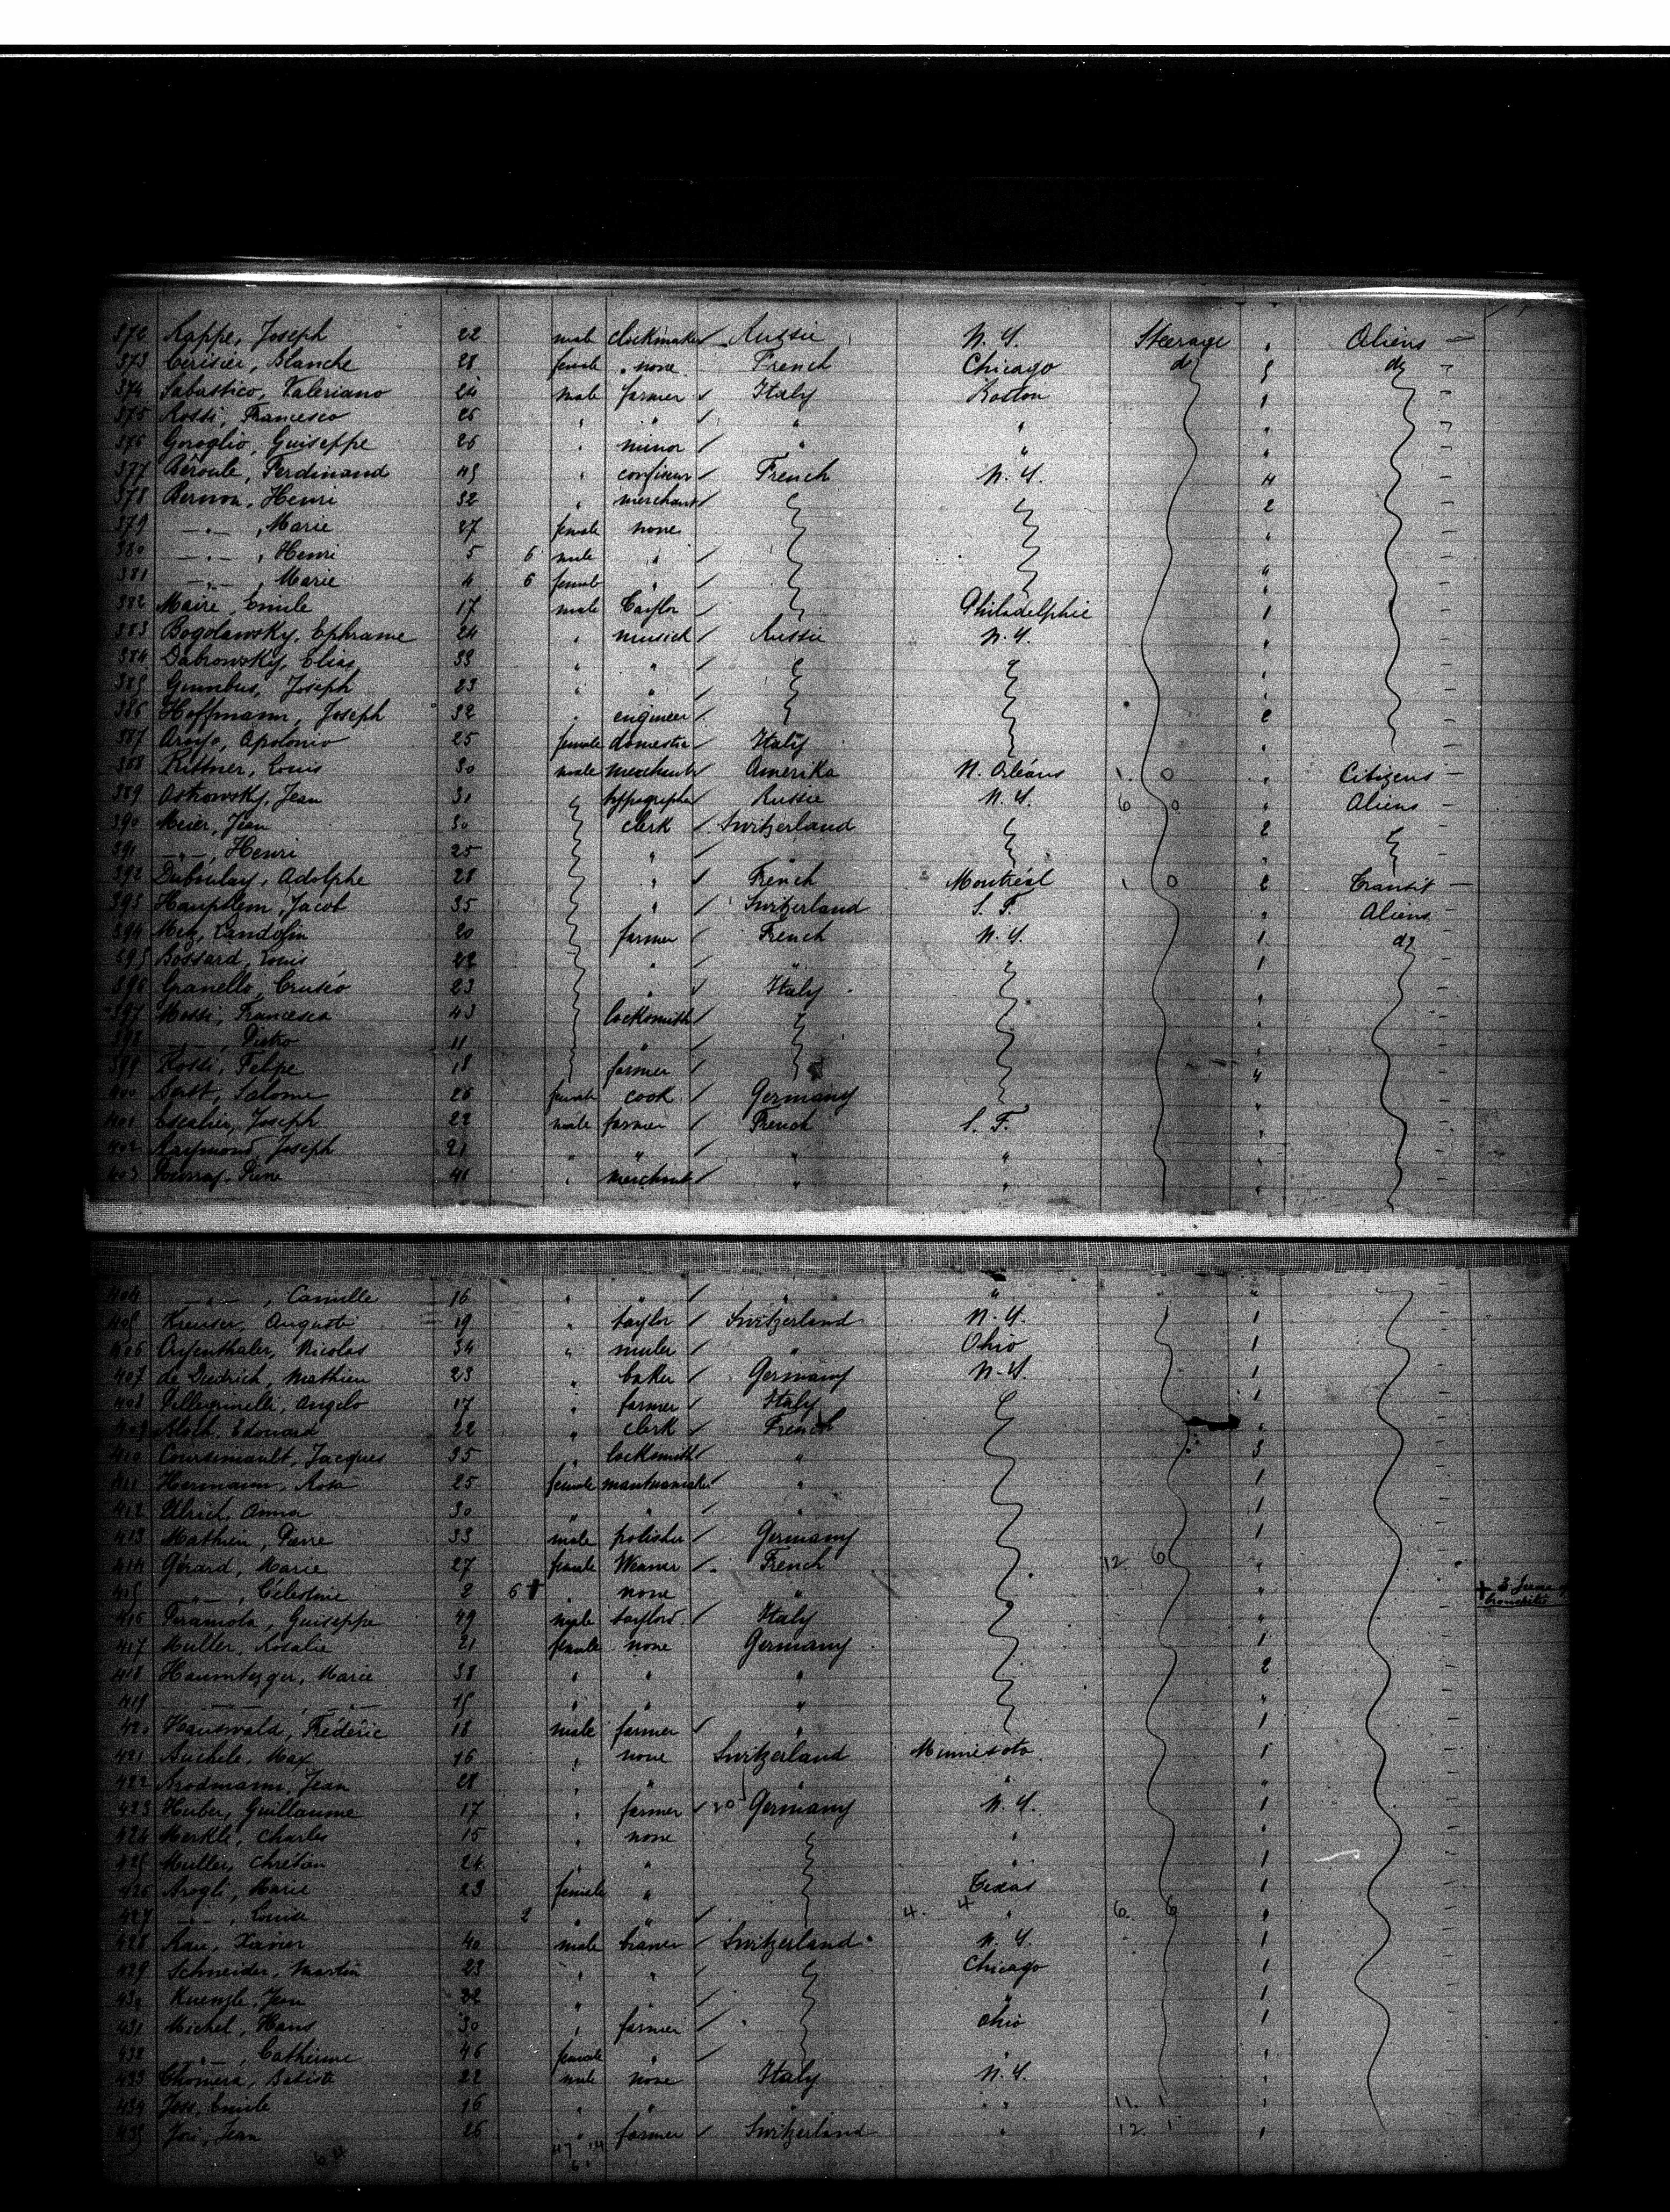 372 Kappe, Joseph 22 male clockmaker Russie N. Y. Steerage " Aliens
373 Cerisier, Blanche 28 female none French Chicago do 5 do
374 Sabastico, Valeriano 24 male farmer Italy Boston 1
375 Rossi, Francesco 26 " " " " "
376 Goroglio, Guiseppe 26 " minor " " "
377 Béroule, Ferdinand 45 " French N. Y. 4
378 Bernon, Henri 32 " merchant 2
379 -"- , Marie 27 female none "
380 -"- , Henri 5 6 male " "
381 -"- , Marie 4 6 female " "
382 Maire, Emile 17 male Taylor Philadelphie 1
383 Bogolawsky, Ephrame 24 " musick Russie N. Y. "
384 Dabrowsky, Elias 33 " " "
385 Joseph 23 " " "
386 Hoffmann, Joseph 32 " engineer 2
387 Apolonio 25 female domestic Italy "
388 Rittner, Louis 30 male merchant Amerika N. Orléans 1. 0 " Citizens
389 Ostrowsky, Jean 31 typographer Russie N. Y. 6 0 " Aliens
390 Meier, Jean 30 clerk Switzerland 2
391 -"- , Henri 25 " "
392 Duboulay, Adolphe 28 " French Montréal 1 0 2 Transit
393 Jacob 35 " Switzerland S. F. " Aliens
394 Landolin 20 farmer French N. Y. 1 do
395 Bossard, Louis 22 " " " 1
396 Granello, 23 " Italy "
397 Mossi, Francesco 43 locksmith "
398 -"- , Pietro 11 " "
399 Rossi, Felipe 18 farmer 4
400 Salome 26 female cook Germany "
401 Escalier, Joseph 22 male farmer French S. F. "
402 Raymond, Joseph 21 " " " " "
403 41 " merchant " " "
404 -"- , Camille 16 " " " " "
405 Auguste 19 " taylor Switzerland N. Y. 1
406 Nicolas 34 " " Ohio 1
407 de Diedrich, Mathieu 23 " baker Germany N. Y. 1
408 Angelo 17 " farmer Italy 1
409 Bloch, Edouard 22 " clerk French "
410 Jacques 35 " locksmith " 3
411 Hermann, Rosa 25 female mantuamaker " 1
412 Ulrich, Anna 30 " " " 1
413 Mathieu, Pierre 33 male polisher Germany 1
414 Gérard, Marie 27 female Weaver French 12. 6 "
415 -"- , Célestine 2 6 + " none " " + 3 June
bronchitis
416 Guiseppe 49 male taylor Italy "
417 Muller, Rosalie 21 female none Germany 1
418 Marie 38 " " " 2
419 15 " " " "
420 Hauswald, Fréderic 18 male farmer " 1
421 Max 16 " none Switzerland Minnesota 1
422 Jean 28 " " " " "
423 Huber, Guillaume 17 " farmer 20 Germany N. Y. 1
424 Merkle, Charles 15 " none " 1
425 Muller, Chrétien 24 " " " 1
426 Marie 23 female " Texas 1
427 -"- , Louise 2 " " 4. 4 " 6. 6 "
428 Xavier 40 male Switzerland N. Y. 1
429 Schneider, Martin 23 " " Chicago 1
430 Kuenzle, Jean 32 " " " 1
431 Michel, Hans 30 " farmer Ohio 1
432 -"- , Catherine 46 female " " "
433 Batiste 22 male none Italy N. Y. "
434 Emile 16 " " " " 11. 1 "
435 Jean 26 " farmer Switzerland " 12. 1 1